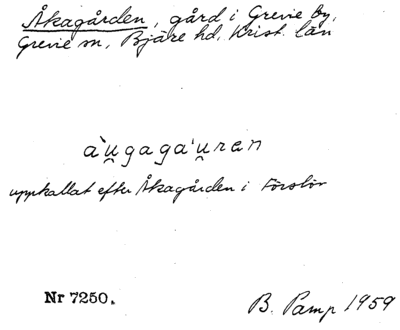 Åkagården, gård i Grevie by,
Grevie sn, Bjäre hd, Krist. län
a`u̯gaga'u̯ren
uppkallat efter Åkagården i Förslöv
Nr 7250.
B. Pamp 1959